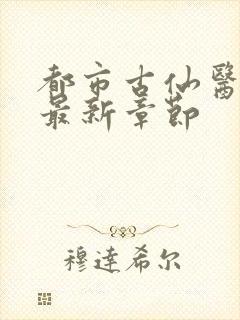 都市古仙醫
最新章節
穆達希尔